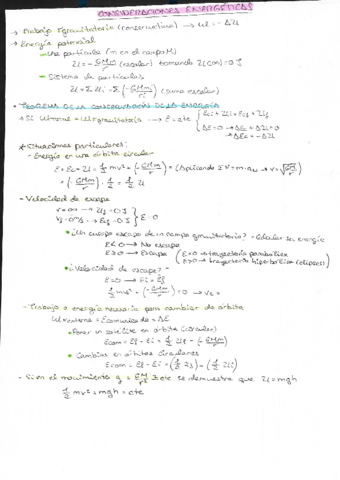 CONSIDERACIONES ENERGÉTICAS
→ Trabajo gravitatorio (conservativa) → W = -ΔU
→ Energía potencial
- Una partícula (m en el campo M)
U = - GMm/r (escalar) tomando U(∞) = 0 J
- Sistema de partículas
U = Σ Ui = Σ (- GMm/ri) (suma escalar)
• TEOREMA DE LA CONSERVACIÓN DE LA ENERGÍA
* Situaciones particulares:
- Energía en una órbita circular
E = Ec + U = 1/2 mv² + (- GMm/r) = (Aplicando ΣF = m·an → v = √GM/r)
= (- GMm/r) · 1/2 = 1/2 U
- Velocidad de escape
r = ∞ → Uf = 0 J
Vf = 0 m/s → Ecf = 0 J } E = 0
• ¿Un cuerpo escapa de un campo gravitatorio? - Calcular su energía
E < 0 → No escapa
E ≥ 0 → Escapa (E = 0 → trayectoria parabólica
E > 0 → trayectoria hiperbólica (elipses))
• ¿Velocidad de escape? -
E = 0 → Ei = Ef
1/2 mv² + (- GMm/r) = 0 → ve =
- Trabajo o energía necesaria para cambiar de órbita
W externo = E comunicada = ΔE
• Poner un satélite en órbita (circular)
Ecom = Ef - Ei = 1/2 Uf - (- GMm/r)
• Cambios en órbitas circulares
Ecom = Ef - Ei = (1/2 Uf) - (1/2 Ui)
- Si en el movimiento g = GM/r² = cte se demuestra que U = mgh
1/2 mv² = mgh = cte